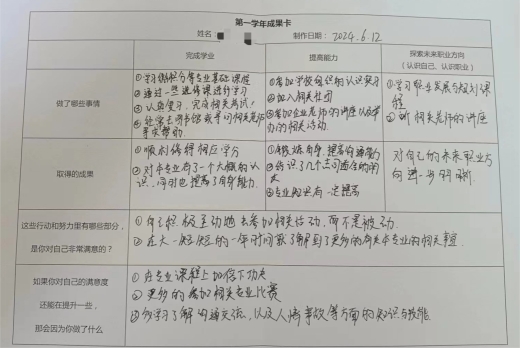 第一学年成果卡
姓名: 制作日期: 2024.6.12
完成学业
提高能力
探索未来职业方向
(认识自己、认识职业)
做了哪些事情
①学习微积分等专业基础课程
②通过一些选修课进行学习
③认真复习,完成相关考试!
④经常去图书馆或寻问相关老师
寻求帮助.
①参加学校组织的认识实习
②加入相关社团
③参加企业老师的讲座以及举
办的相关活动.
①学习职业发展与规划课
程
②听相关老师的讲座
取得的成果
①顺利修得相应学分
②对本专业有了一个大概的认
识,同时也提高了自身能力.
①锻炼自身,提高沟通能力
②结识了几个志同道合的朋
友
③专业知识有一定提高
对自己的未来职业方
向进一步明晰
这些行动和努力里有哪些部分,
是你对自己非常满意的?
①自己积极主动地去参加相关活动,而不是被动.
②在大一短短的一年时间里了解到了更多的有关本专业的相关事宜.
如果你对自己的满意度
还能在提升一些,
那会因为你做了什么
①在专业课程上加倍下功夫
②更多的参加相关专业比赛
③多学习了解沟通交流,以及人情事故等方面的知识与技能